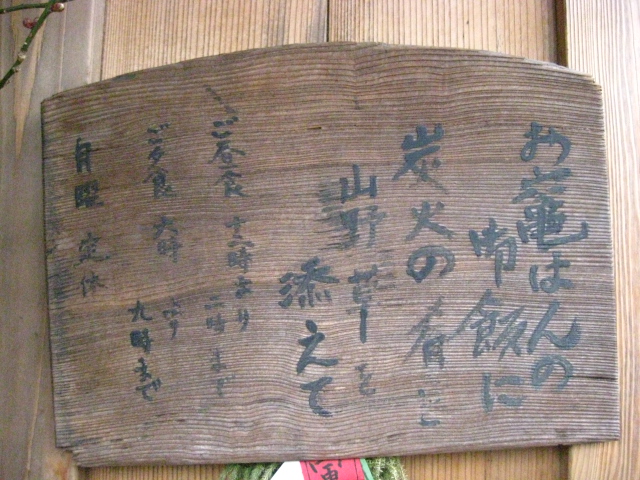 お竈はんの
御飯に
炭火の肴と
山野草を
添えて
ご昼食 十二時より
二時まで
ご夕食 六時より
九時まで
月曜 定休